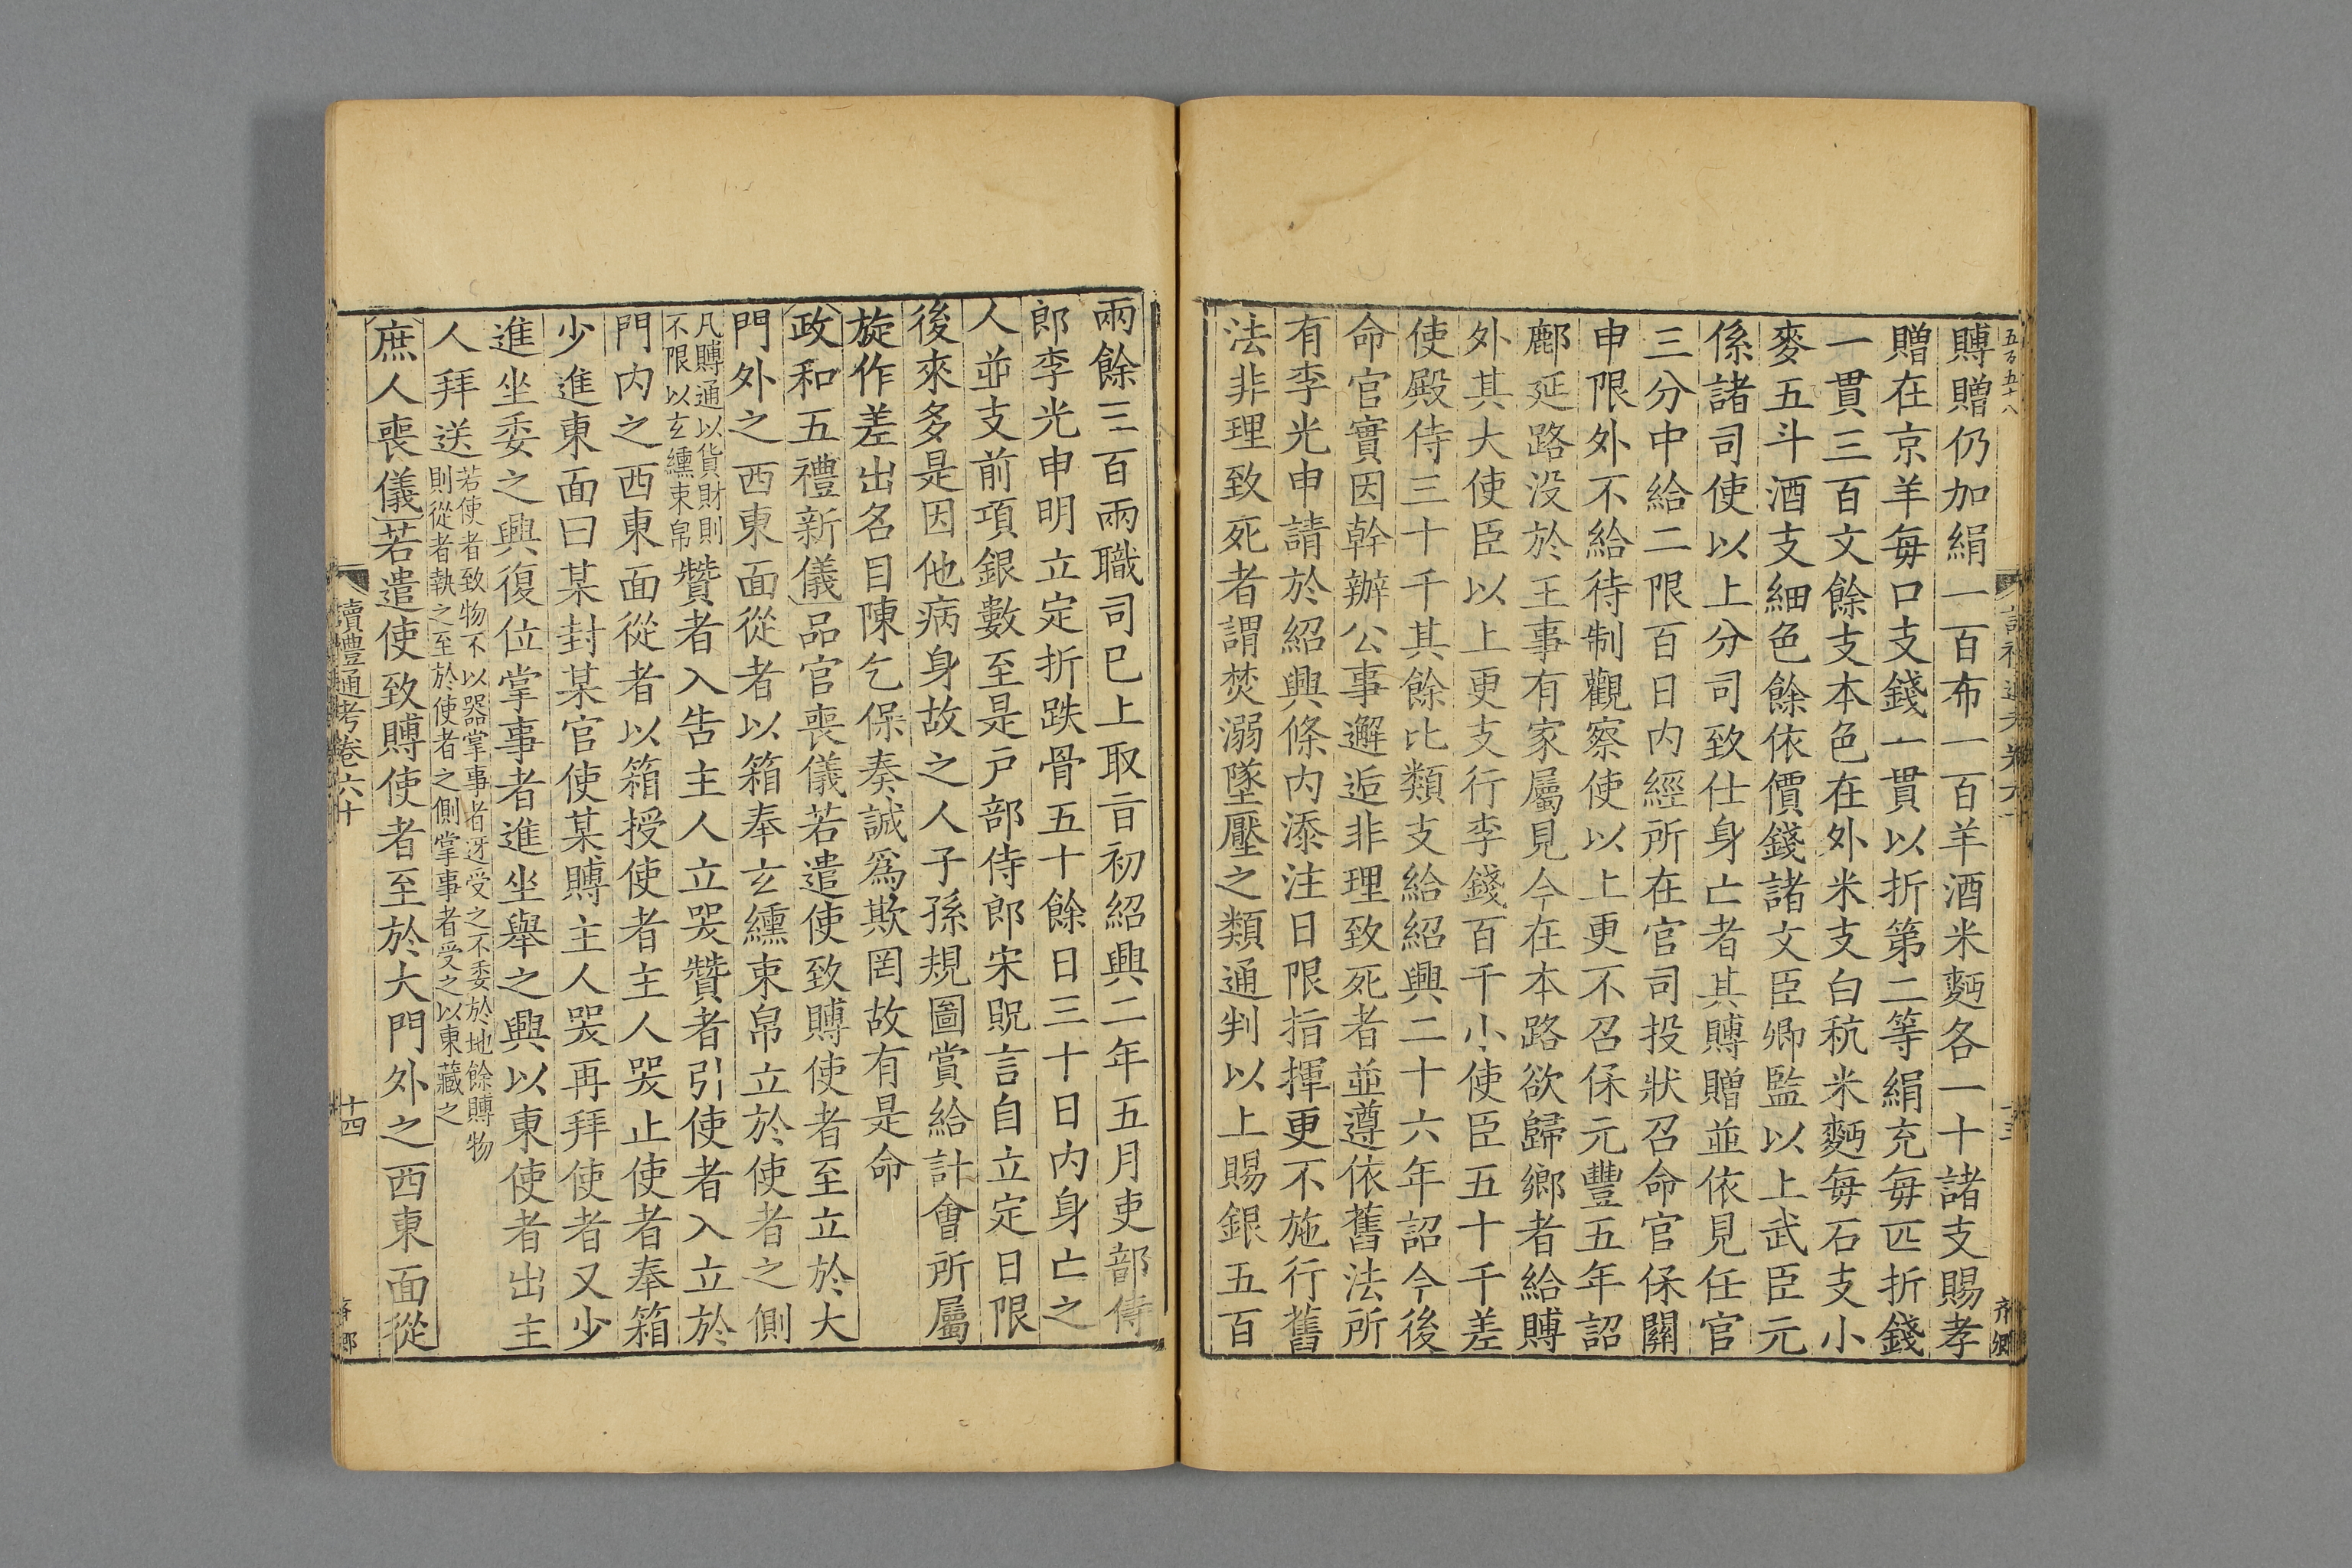 五百五十八
賻贈仍加絹一百布一百羊酒米麪各一十諸支賜孝
贈在京羊每口支錢一貫以折第二等絹充每匹折錢
一貫三百文餘支本色在外米支白秔米麪每石支小
麥五斗酒支細色餘依價錢諸文臣卿監以上武臣元
係諸司使以上分司致仕身亡者其賻贈並依見任官
三分中給二限百日內經所在官司投狀召命官保關
申限外不給待制觀察使以上更不召保元豐五年詔
鄜延路没於王事有家屬見今在本路欲歸鄉者給賻
外其大使臣以上更支行李錢百千小使臣五十千差
使殿侍三十千其餘比類支給紹興二十六年詔今後
命官實因幹辦公事邂逅非理致死者並遵依舊法所
有李光申請於紹興條內添注日限指揮更不施行舊
法非理致死者謂焚溺墜壓之類通判以上賜銀五百
兩餘三百兩職司已上取㫖初紹興二年五月吏部侍
郎李光申明立定折跌骨五十餘日三十日內身亡之
人並支前項銀數至是戸部侍郎宋貺言自立定日限
後來多是因他病身故之人子孫規圖賞給計會所屬
旋作差出名目陳乞保奏誠爲欺罔故有是命
政和五禮新儀品官喪儀若遣使致賻使者至立於大
門外之西東面從者以箱奉玄纁束帛立於使者之側
凡賻通以貨財則
不限以玄纁束帛
贊者入告主人立哭贊者引使者入立於
門内之西東面從者以箱授使者主人哭止使者奉箱
少進東面曰某封某官使某賻主人哭再拜使者又少
進坐委之興復位掌事者進坐舉之興以東使者出主
人拜送
若使者致物不以器掌事者迓受之不委於地餘賻物
則從者執之至於使者之側掌事者受之以東藏之
庶人喪儀若遣使致賻使者至於大門外之西東面從
讀禮通考卷六十
十四